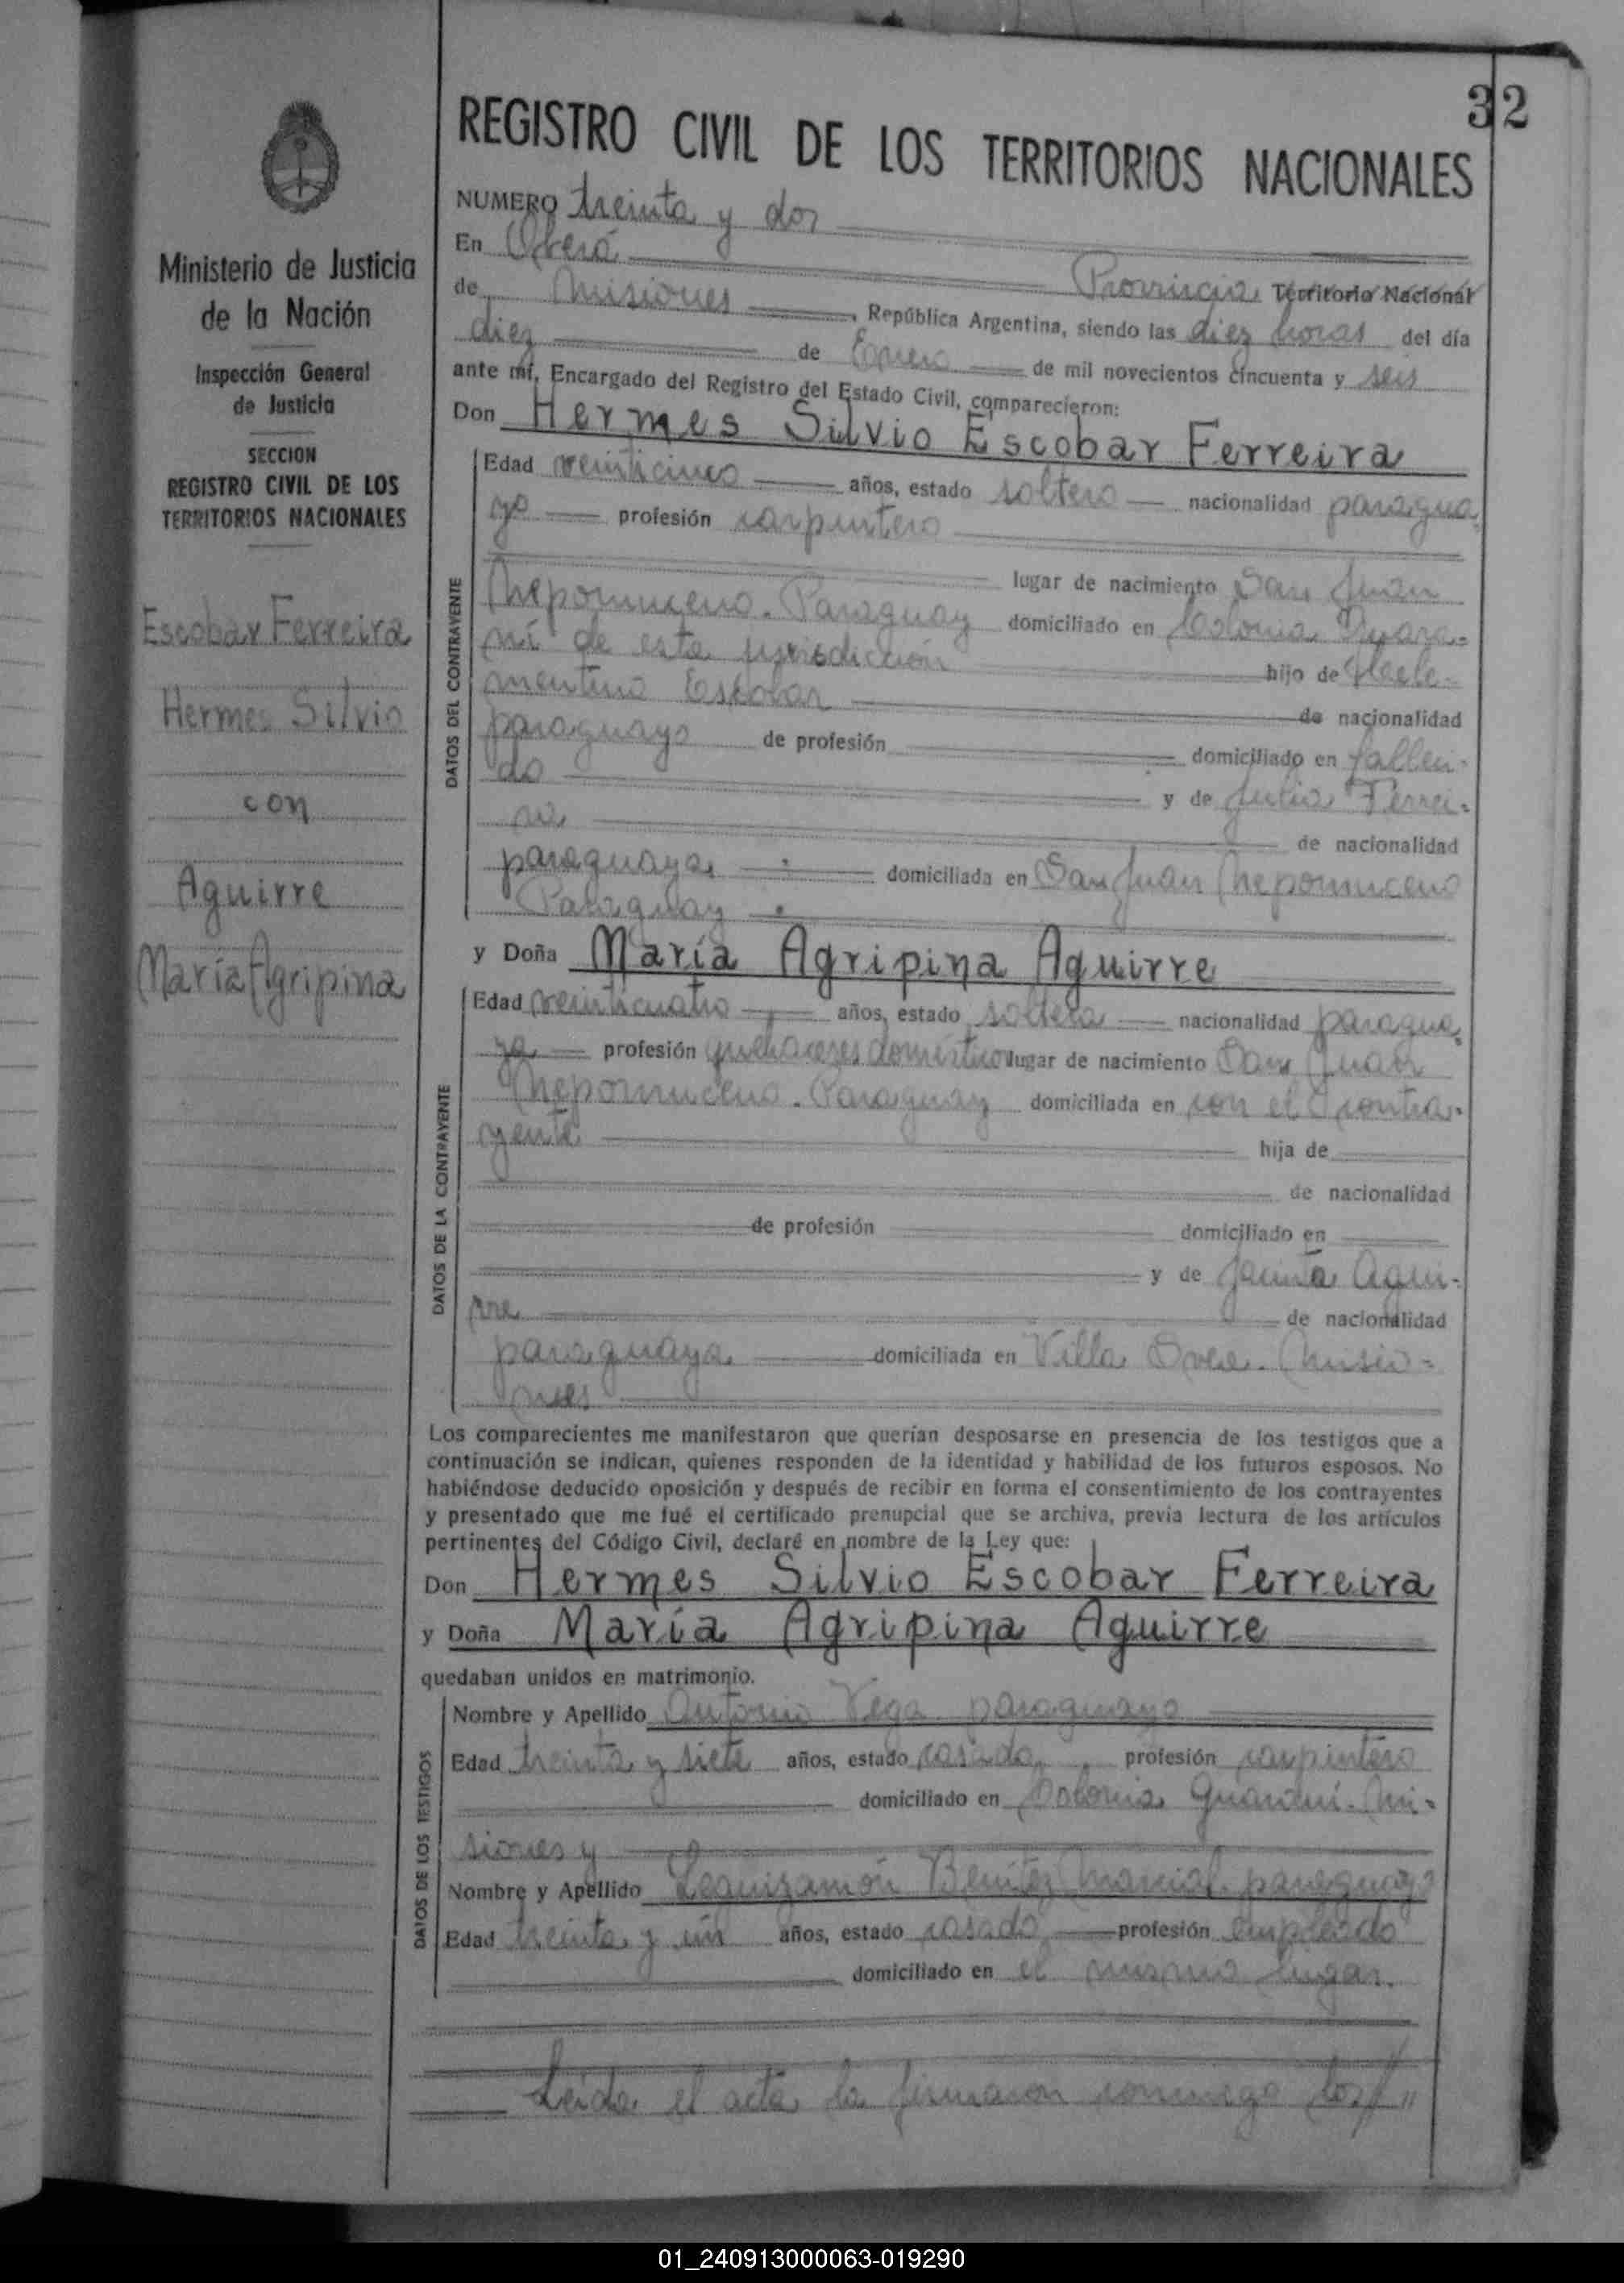 32
REGISTRO CIVIL DE LOS TERRITORIOS NACIONALES
Ministerio de Justicia
de la Nación
Inspección General
de Justicia
SECCION
REGISTRO CIVIL DE LOS
TERRITORIOS NACIONALES
Escobar Ferreira
Hermes Silvio
con
Aguirre
María Agripina
NUMERO treinta y dos
En Oberá
Provincia Territorio Nacional
de Misiones, República Argentina, siendo las diez horas del día
diez de Enero de mil novecientos cincuenta y seis
ante mí, Encargado del Registro del Estado Civil, comparecieron:
Don Hermes Silvio Escobar Ferreira
DATOS DEL CONTRAYENTE
Edad veinticinco años, estado soltero nacionalidad paragua
yo profesión carpintero
lugar de nacimiento San Juan
Nepomuceno. Paraguay domiciliado en Colonia Guara-
ní de esta jurisdicción hijo de
mentino Escobar de nacionalidad
paraguayo de profesión domiciliado en falleci-
do y de Julia Ferrei-
ra de nacionalidad
paraguaya domiciliada en San Juan Nepomuceno
Paraguay
y Doña María Agripina Aguirre
DATOS DE LA CONTRAYENTE
Edad veinticuatro años, estado soltera nacionalidad paragua
ya profesión quehaceres domésticos lugar de nacimiento San Juan
Nepomuceno. Paraguay domiciliada en con el contra-
yente hija de
de nacionalidad
de profesión domiciliado en
y de Jacinta Agui-
rre de nacionalidad
paraguaya domiciliada en Villa Svea. Misio-
nes
Los comparecientes me manifestaron que querían desposarse en presencia de los testigos que a
continuación se indican, quienes responden de la identidad y habilidad de los futuros esposos. No
habiéndose deducido oposición y después de recibir en forma el consentimiento de los contrayentes
y presentado que me fué el certificado prenupcial que se archiva, previa lectura de los artículos
pertinentes del Código Civil, declaré en nombre de la Ley que:
Don Hermes Silvio Escobar Ferreira
y Doña María Agripina Aguirre
quedaban unidos en matrimonio.
DATOS DE LOS TESTIGOS
Nombre y Apellido Antonio Vega paraguayo
Edad treinta y siete años, estado casado profesión carpintero
domiciliado en Colonia Guaraní. Mi-
siones y
Nombre y Apellido Leguizamón Benítez Marcial paraguayo
Edad treinta y un años, estado casado profesión empleado
domiciliado en el mismo lugar.
Leida el acta la firmaron conmigo los//
01_240913000063-019290